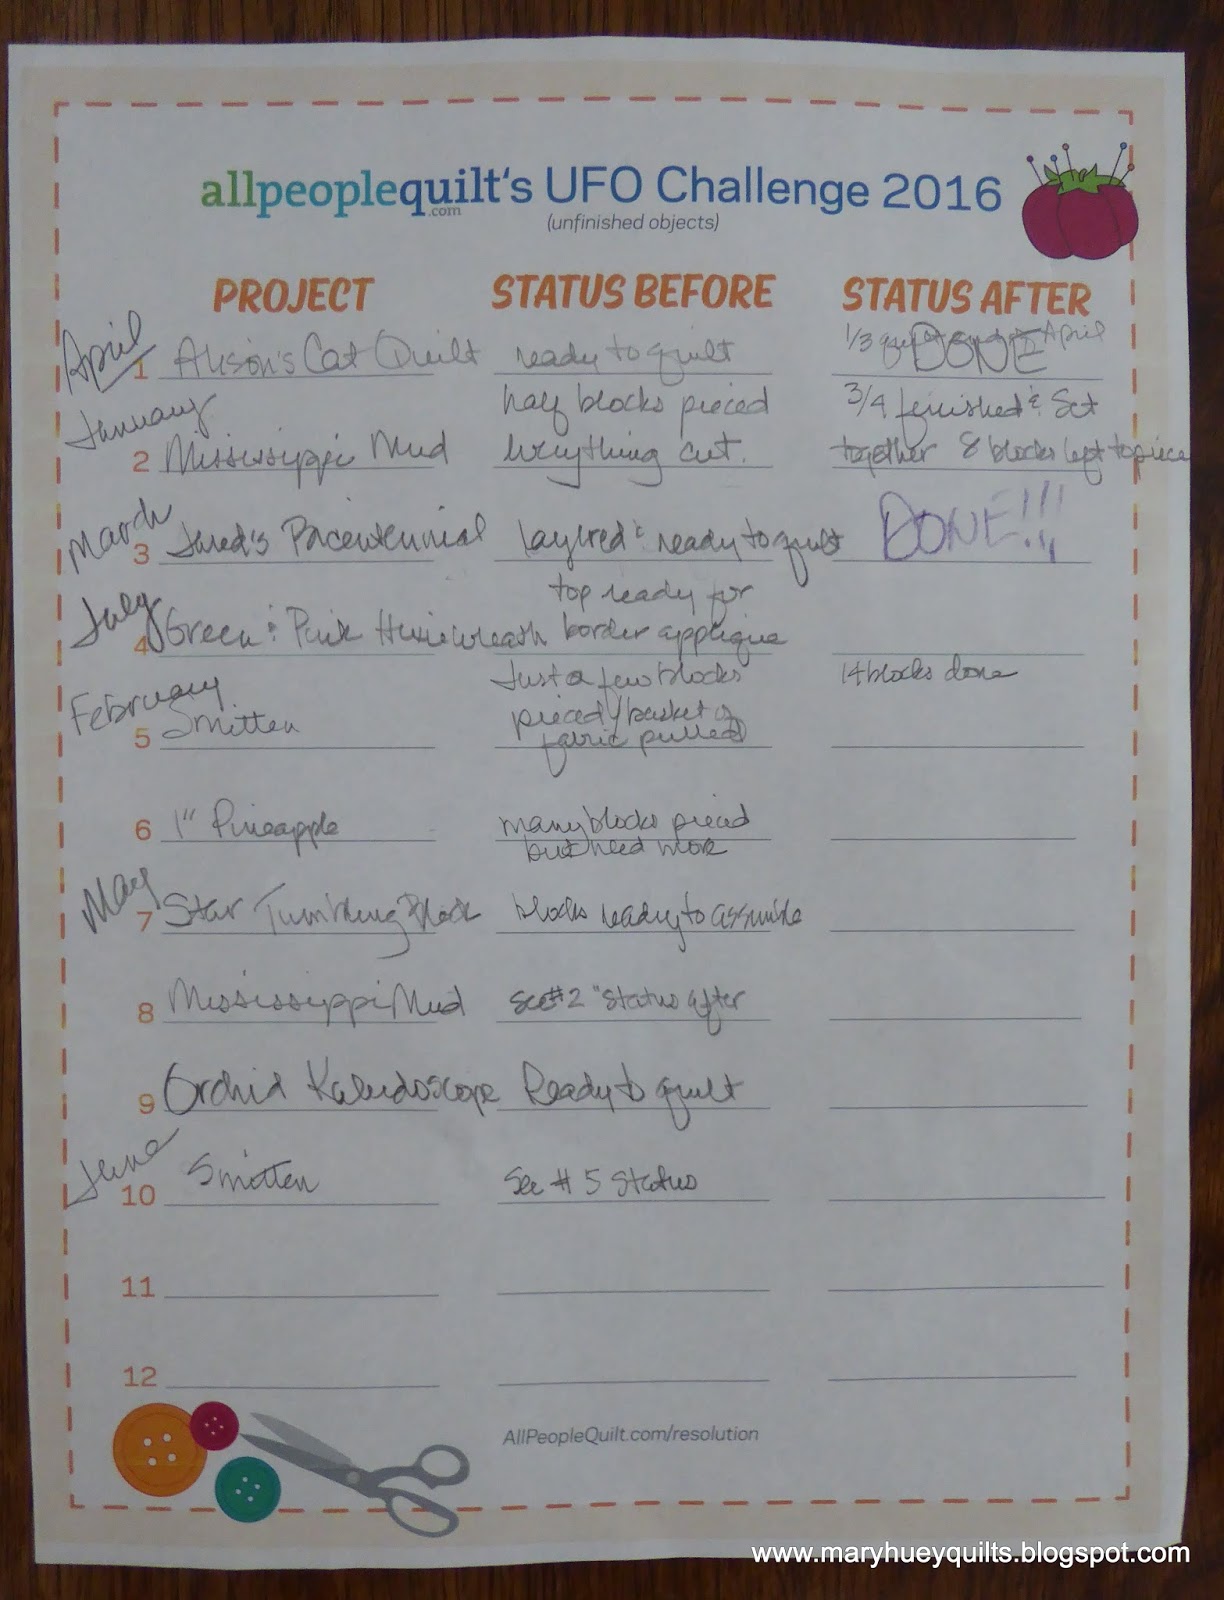 allpeoplequilt's UFO Challenge 2016
.com
(unfinished objects)
PROJECT STATUS BEFORE STATUS AFTER
April
1 Alison's Cat Quilt ready to quilt 1/3 April DONE
January
half blocks pieced 3/4 finished & Set
2 Mississippi Mud everything cut. together 8 blocks left to piece
March
3 Jared's layered & ready to quilt DONE!!!
July
top ready for
4 Green & Pink Hexie wreath border applique
February
Just a few blocks 14 blocks done
5 Smitten pieced / basket of
fabric pulled
6 1" Pineapple many blocks pieced
but need more
May
7 Star Tumbling Block blocks ready to assemble
8 Mississippi Mud See #2 "Status after
9 Orchid Kaleidoscope Ready to quilt
June
10 Smitten See # 5 Status
11
12
AllPeopleQuilt.com/resolution
www.maryhueyquilts.blogspot.com